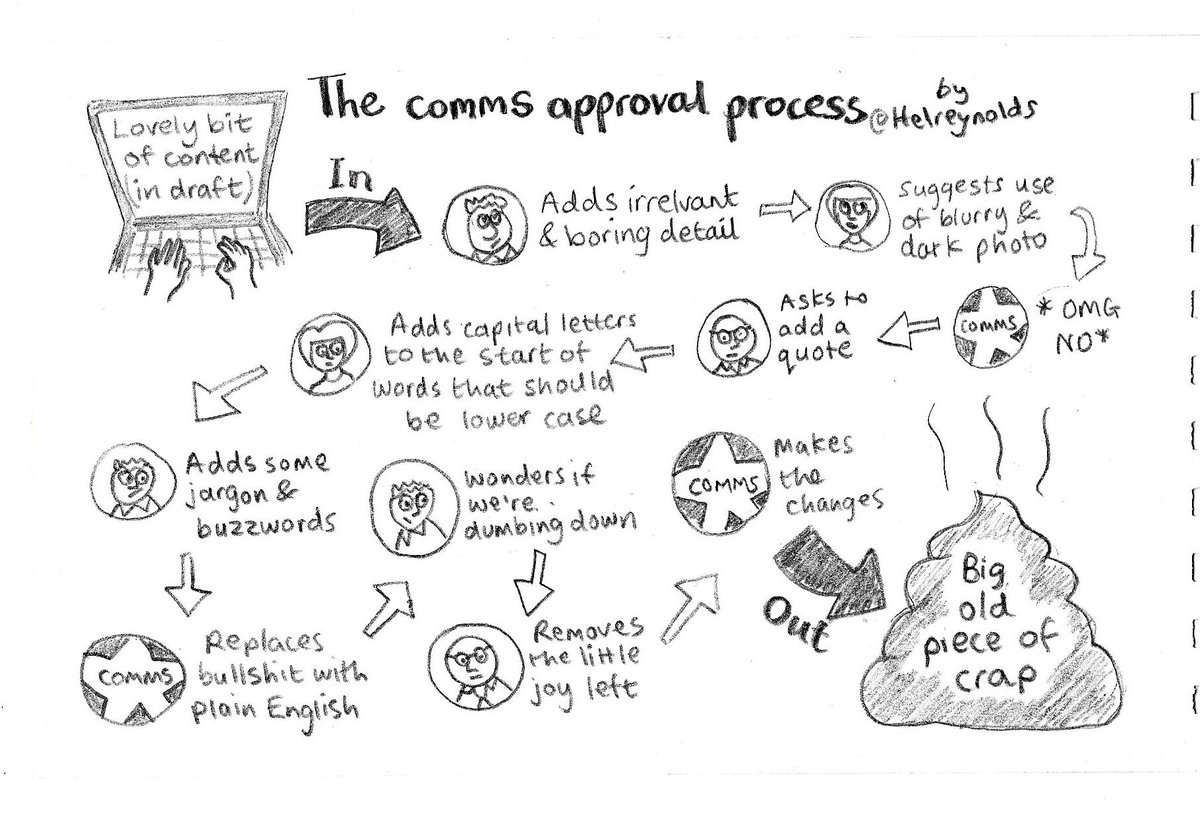 The comms approval process
by
@Helreynolds
Lovely bit
of content
(in draft)
In
Adds irrelvant
& boring detail
Suggests use
of blurry &
dark photo
* OMG
NO*
COMMS
Asks to
add a
quote
Adds capital letters
to the start of
words that should
be lower case
Adds some
jargon &
buzzwords
COMMS
Replaces
bullshit with
plain English
Wonders if
we're
dumbing down
Removes
the little
joy left
COMMS
Makes
the
changes
Out
Big
old
piece of
crap